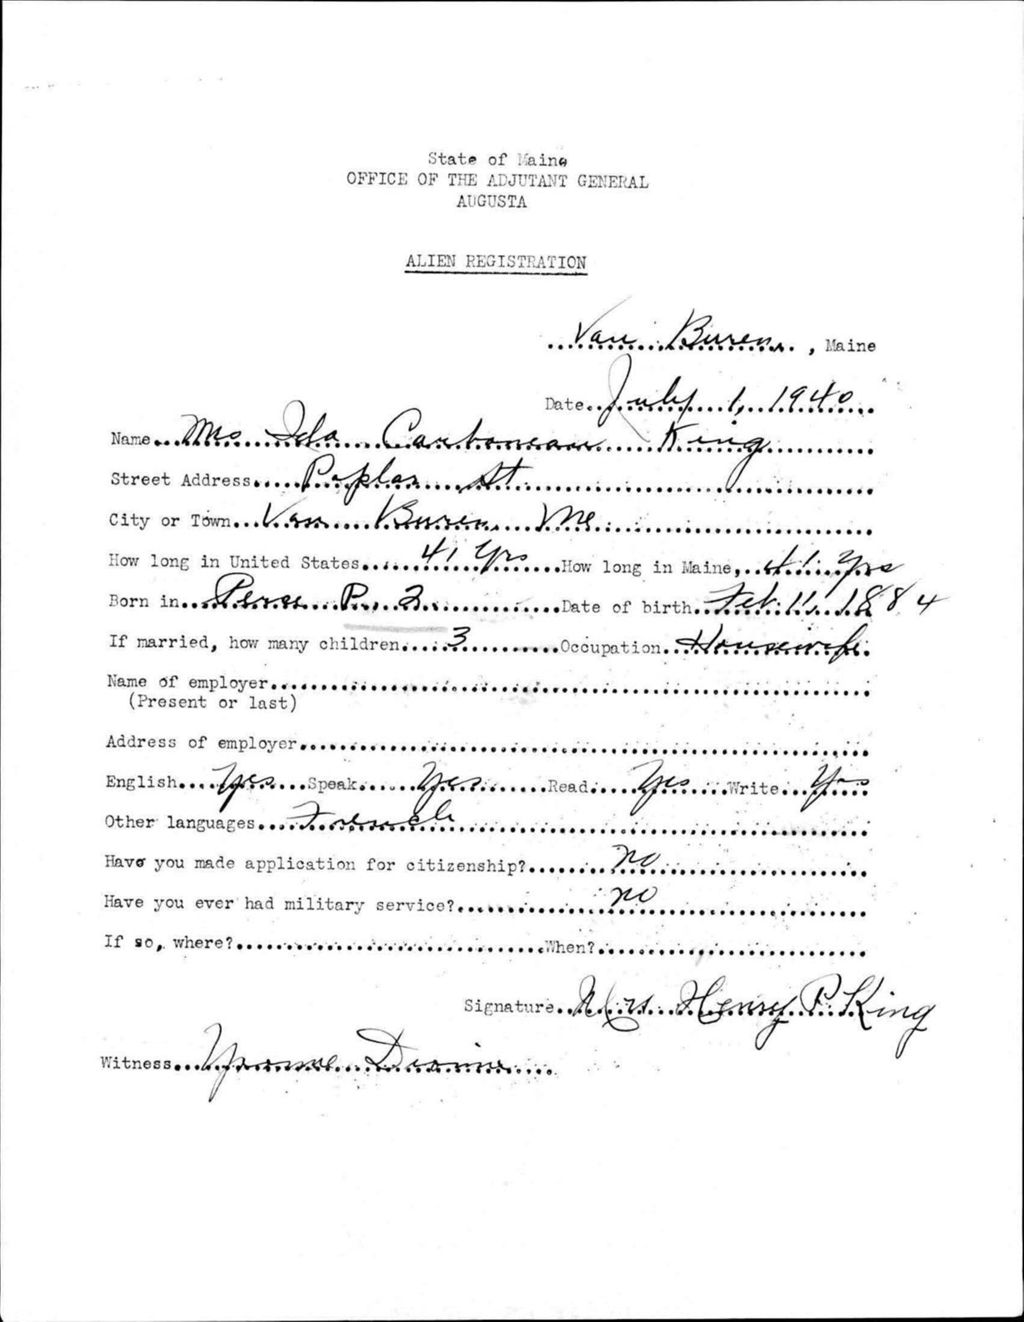 State of Maine
OFFICE OF THE ADJUTANT GENERAL
AUGUSTA
ALIEN REGISTRATION
Van Buren, Maine
Date July 1, 1940
Name Mrs Ida Carboneau King
Street Address Poplar St
City or Town Van Buren Me
How long in United States 41 Yrs How long in Maine, 41 Yrs
Born in Perce P. 2 Date of birth Feb. 11, 1884
If married, how many children 3 Occupation Housewife
Name of employer
(Present or last)
Address of employer
English Yes Speak Yes Read Yes Write Yes
Other languages French
Have you made application for citizenship? no
Have you ever had military service? no
If so, where? When?
Signature Mrs. Henry P. King
Witness Yvonne